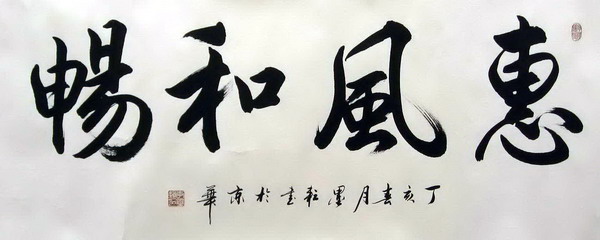 惠風和暢
丁亥春月墨耘書於京華